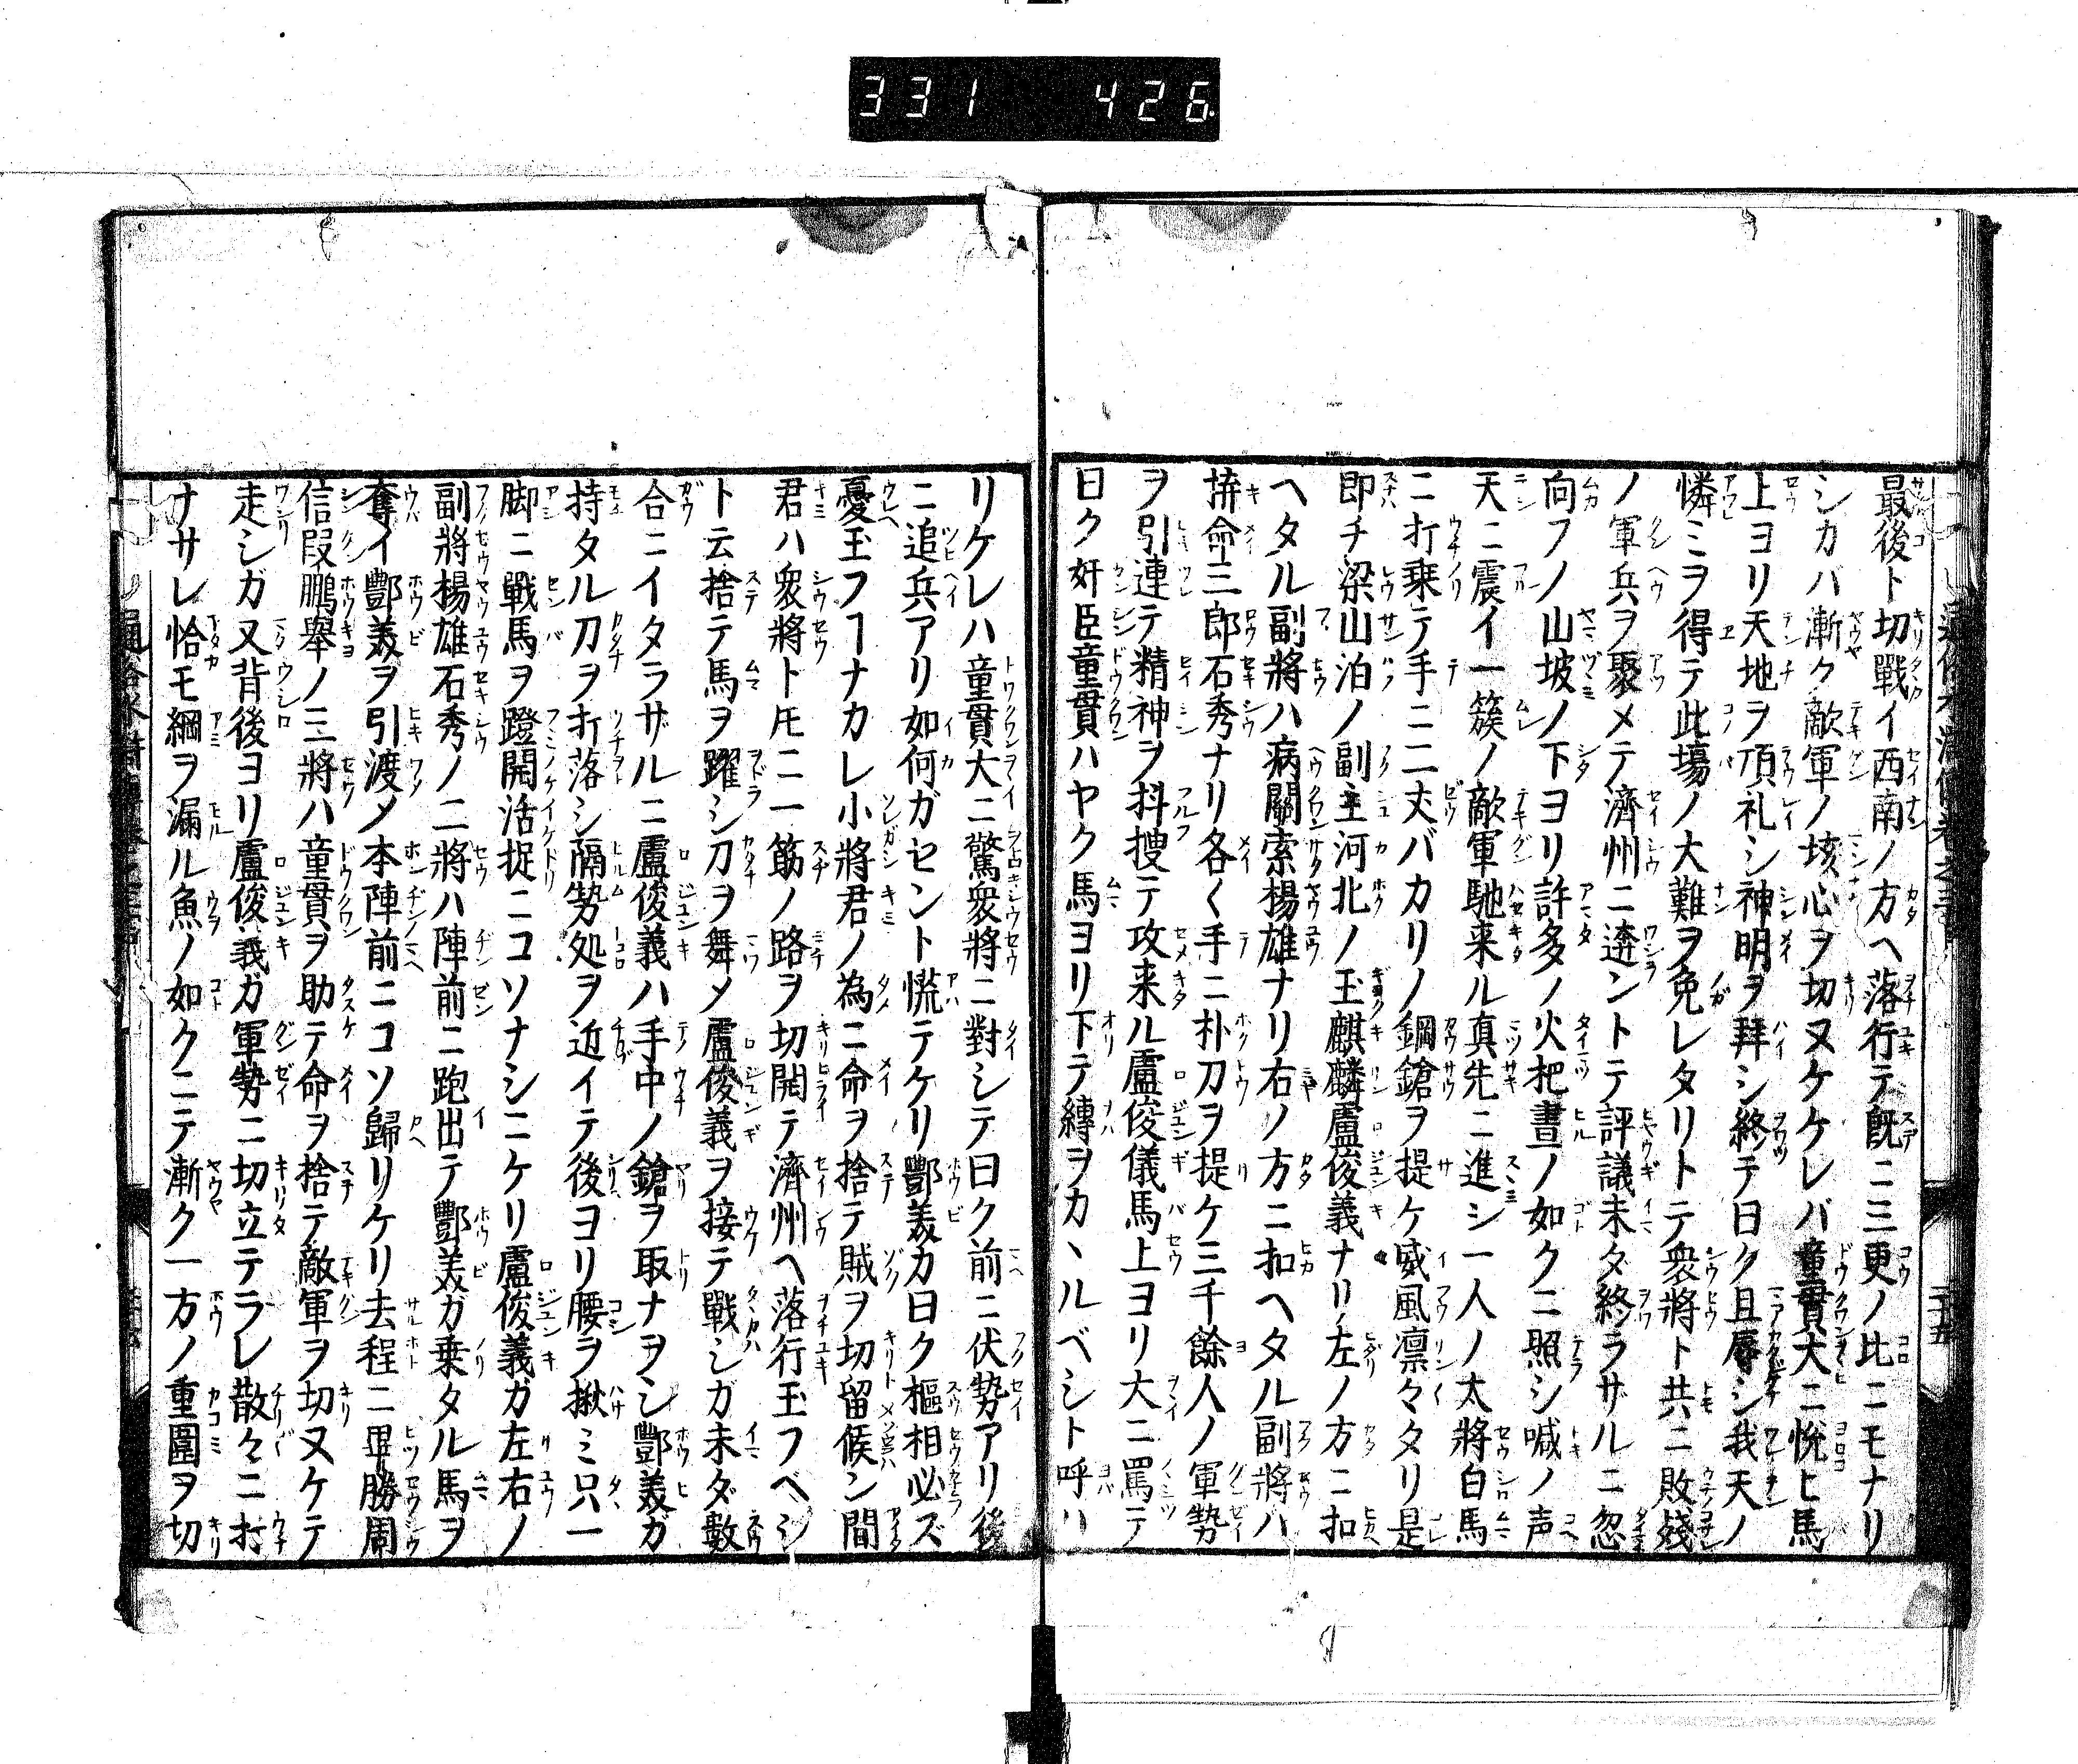 331 426
最後ト切戰イ西南ノ方ヘ落行テ既ニ三更ノ比ニモナリ
シカバ漸ク敵軍ノ垓心ヲ切ヌケケレバ童貫大ニ悦ヒ馬
上ヨリ天地ヲ頂礼シ神明ヲ拜シ終テ曰ク且辱シ我天ノ
憐ミヲ得テ此塲ノ大難ヲ免レタリトテ衆將ト共ニ敗殘
ノ軍兵ヲ聚メテ濟州ニ迯ントテ評議未ダ終ラザルニ忽
向フノ山坡ノ下ヨリ許多ノ火把晝ノ如クニ照シ喊ノ声
天ニ震イ一簇ノ敵軍馳来ル真先ニ進シ一人ノ太將白馬
ニ打乗テ手ニ二丈バカリノ鋼鎗ヲ提ケ威風凛々タリ是
即チ梁山泊ノ副主河北ノ玉麒麟盧俊義ナリ左ノ方ニ扣
ヘタル副將ハ病關索楊雄ナリ右ノ方ニ扣ヘタル副將ハ
拚命三郎石秀ナリ各〱手ニ朴刀ヲ提ケ三千餘人ノ軍勢
ヲ引連テ精神ヲ抖擻テ攻来ル盧俊儀馬上ヨリ大ニ罵テ
曰ク奸臣童貫ハヤク馬ヨリ下テ縳ヲカヽルベシト呼ハ
二十五
リケレハ童貫大ニ驚衆將ニ對シテ曰ク前ニ伏勢アリ後
ニ追兵アリ如何ガセント慌テケリ酆美カ曰ク樞相必ズ
憂玉フヿナカレ小將君ノ為ニ命ヲ捨テ賊ヲ切留候ン間
君ハ衆將ト𪜈ニ一筋ノ路ヲ切開テ濟州ヘ落行玉フベシ
ト云捨テ馬ヲ躍シ刀ヲ舞メ盧俊義ヲ接テ戰シガ未ダ數
合ニイタラザルニ盧俊義ハ手中ノ鎗ヲ取ナヲシ酆美ガ
持タル刀ヲ打落シ隔勢処ヲ近イテ後ヨリ腰ヲ揪ミ只一
脚ニ戰馬ヲ蹬開活捉ニコソナシニケリ盧俊義ガ左右ノ
副將楊雄石秀ノ二將ハ陣前ニ跑出テ酆美ガ乗タル馬ヲ
奪イ酆美ヲ引渡メ本陣前ニコソ歸リケリ去程ニ畢勝周
信叚鵬舉ノ三將ハ童貫ヲ助テ命ヲ捨テ敵軍ヲ切ヌケテ
走シガ又背後ヨリ盧俊義ガ軍勢ニ切立テラレ散々ニ打
ナサレ恰モ綱ヲ漏ル魚ノ如クニテ漸ク一方ノ重圍ヲ切